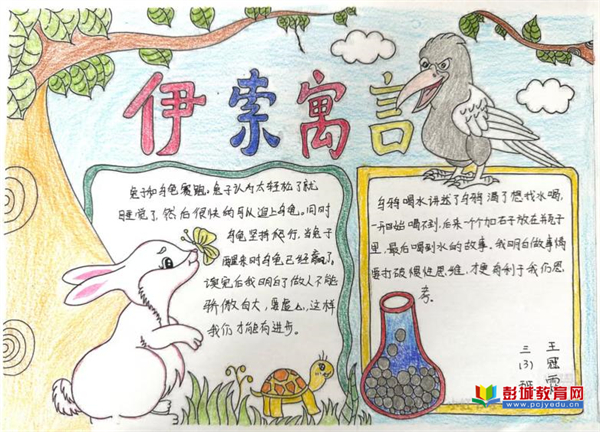 伊索寓言
兔子和乌龟赛跑，兔子认为太轻松了就
睡觉了，然后很快的可以追上乌龟。同时
乌龟坚持爬行，当兔子
醒来时乌龟已经赢了，
读完后我明白了做人不能
骄傲自大，要虚心，这样
我们才能有进步。
乌鸦喝水讲述了乌鸦渴了想找水喝，
一开始喝不到，后来一个个加石子放在瓶子
里，最后喝到水的故事。我明白做事情
要打破惯性思维，才更有利于我们思
考。
三(3)班
王冠
彭城教育网
www.pcjyedu.cn